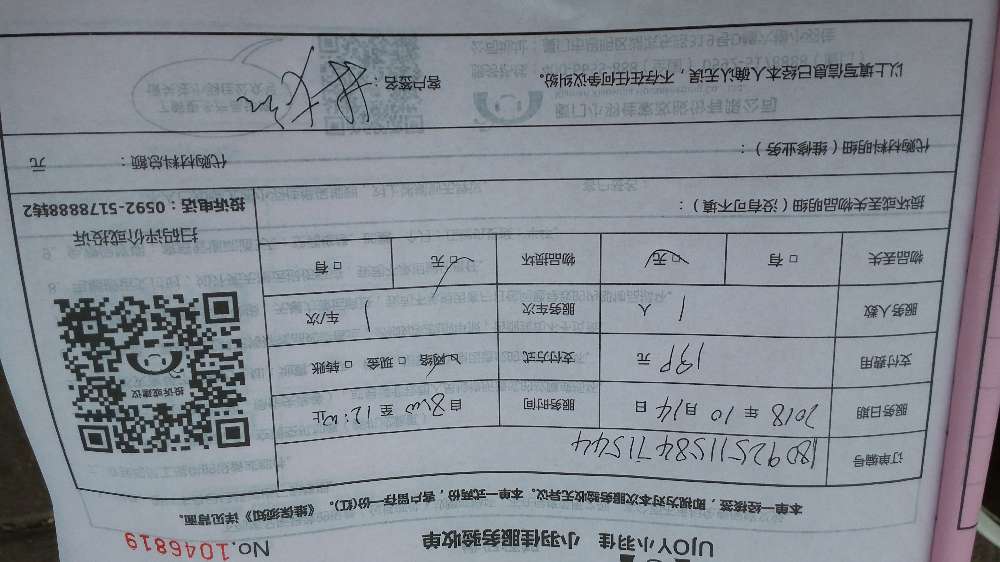 UJOY小羽佳 小羽佳服务验收单 No.1046819
本单一经核签，即视为对本次服务验收无异议。本单一式两份，客户留存一份(红)。《维保须知》详见背面。
订单编号 18092511584715544
服务日期 2018 年 10 月 14 日 服务时间 自 8:00 至 12:00 止
支付费用 198 元 支付方式 网络 □ 现金 □ 转账
服务人数 1 人 服务车次 1 车/次
物品丢失 □ 有 □ 无 物品损坏 □ 无 □ 有
损坏或丢失物品明细（没有可不填）：
投诉或建议
扫码评价或投诉
投诉电话：0592-5178888转2
代购材料明细（维修业务）： 代购材料总额： 元
以上填写信息已经本人确认无误，不存在任何争议纠纷。 客户签名：